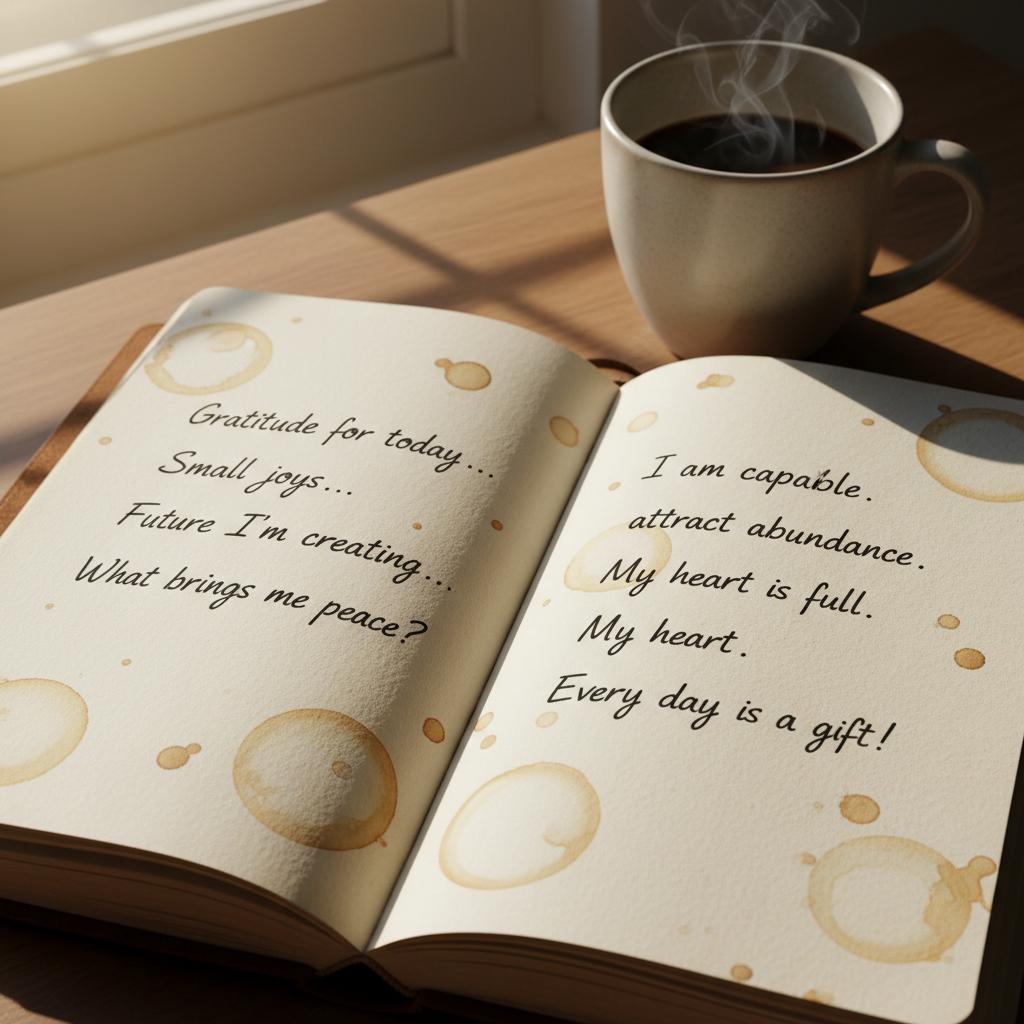 Gratitude for today...
Small joys...
Future I'm creating...
What brings me peace?
I am capable.
attract abundance.
My heart is full.
My heart.
Every day is a gift!